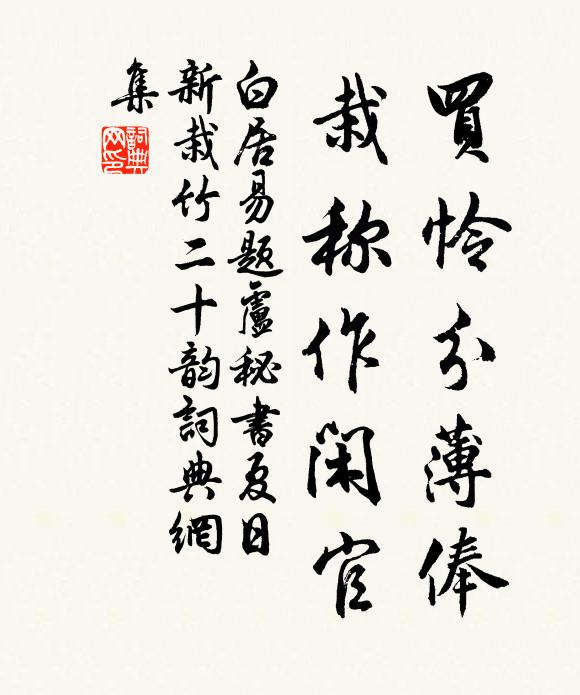 買怜分薄俸
栽称作閑官
白居易题盧秘書夏日
新栽竹二十韵詞典網
集
詞典网印